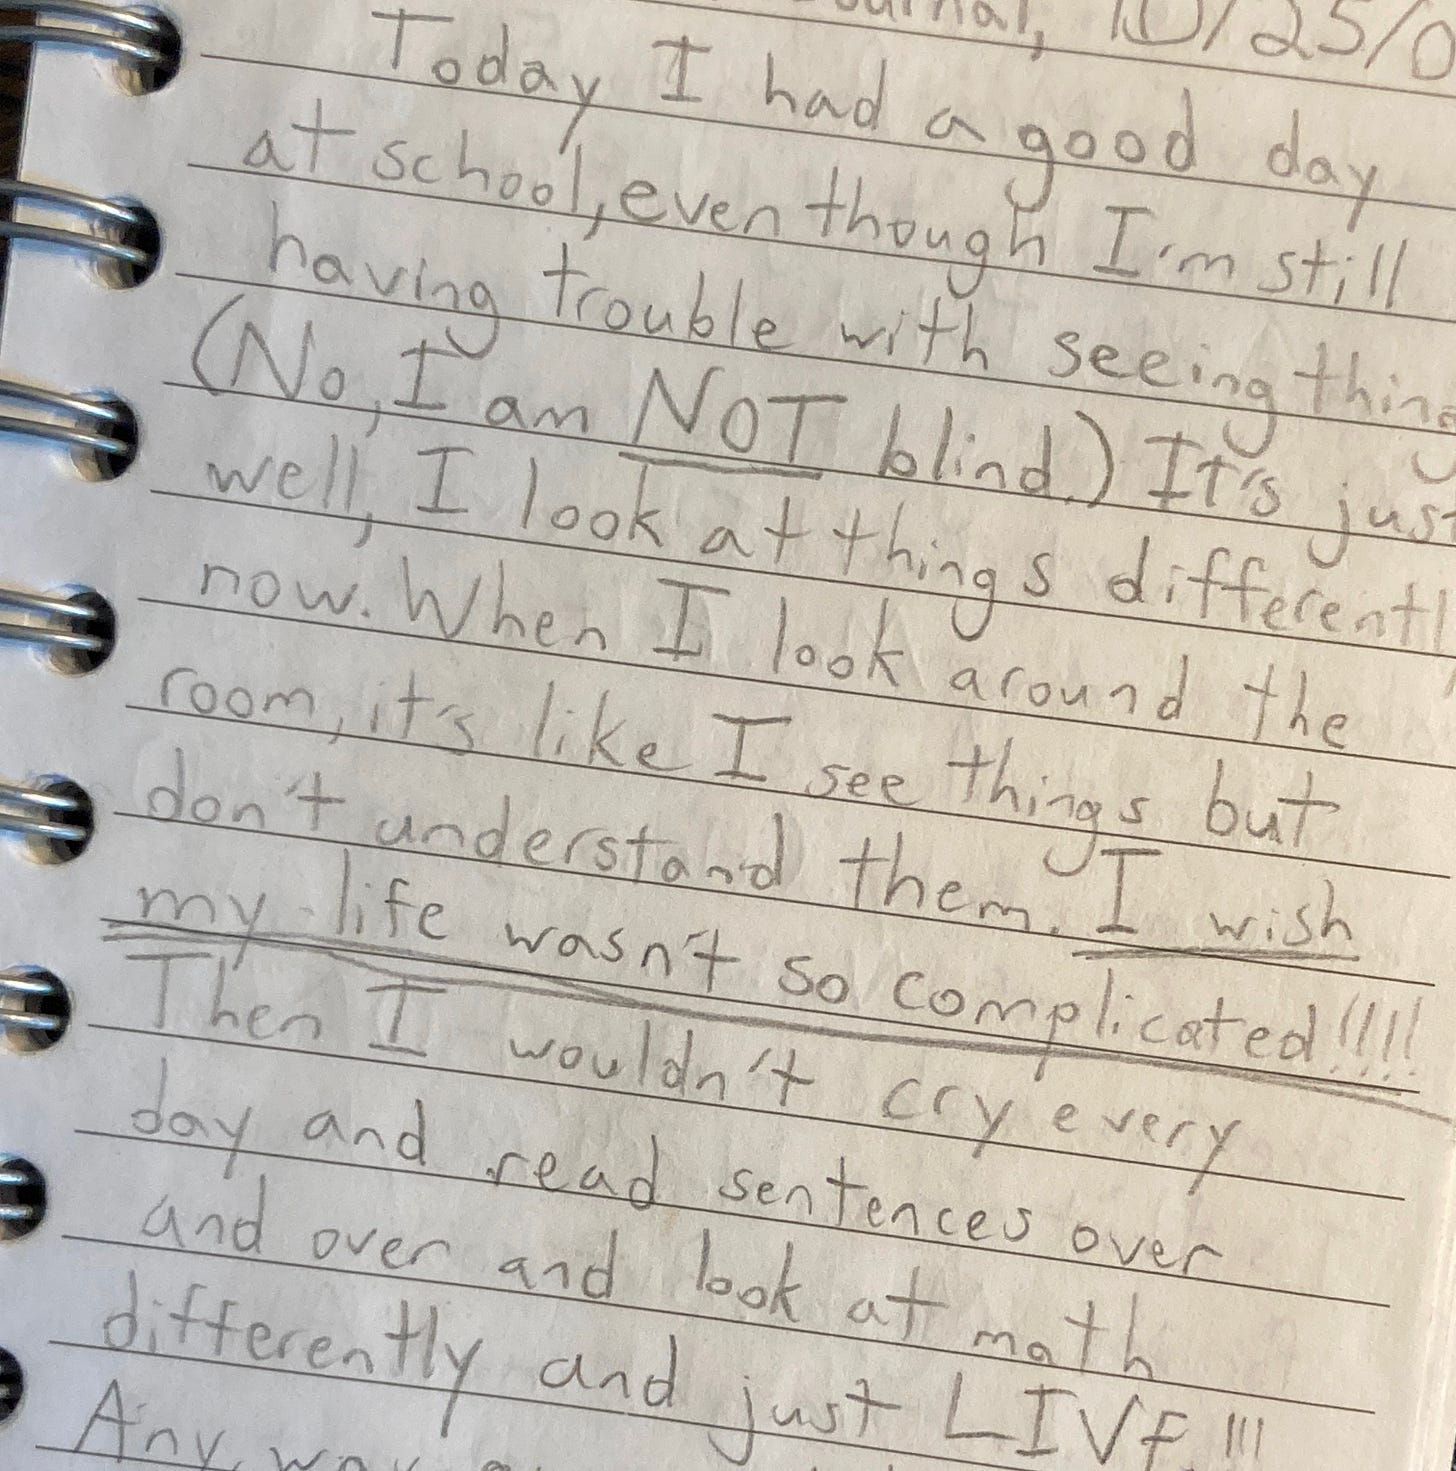 Journal, 10/25/0
Today I had a good day
at school, even though I'm still
having trouble with seeing thing
(No, I am NOT blind.) It's just
well, I look at things differentl
now. When I look around the
room, it's like I see things but
don't understand them. I wish
my life wasn't so complicated!!!!
Then I wouldn't cry every
day and read sentences over
and over and look at math
differently and just LIVE!!!
Any way